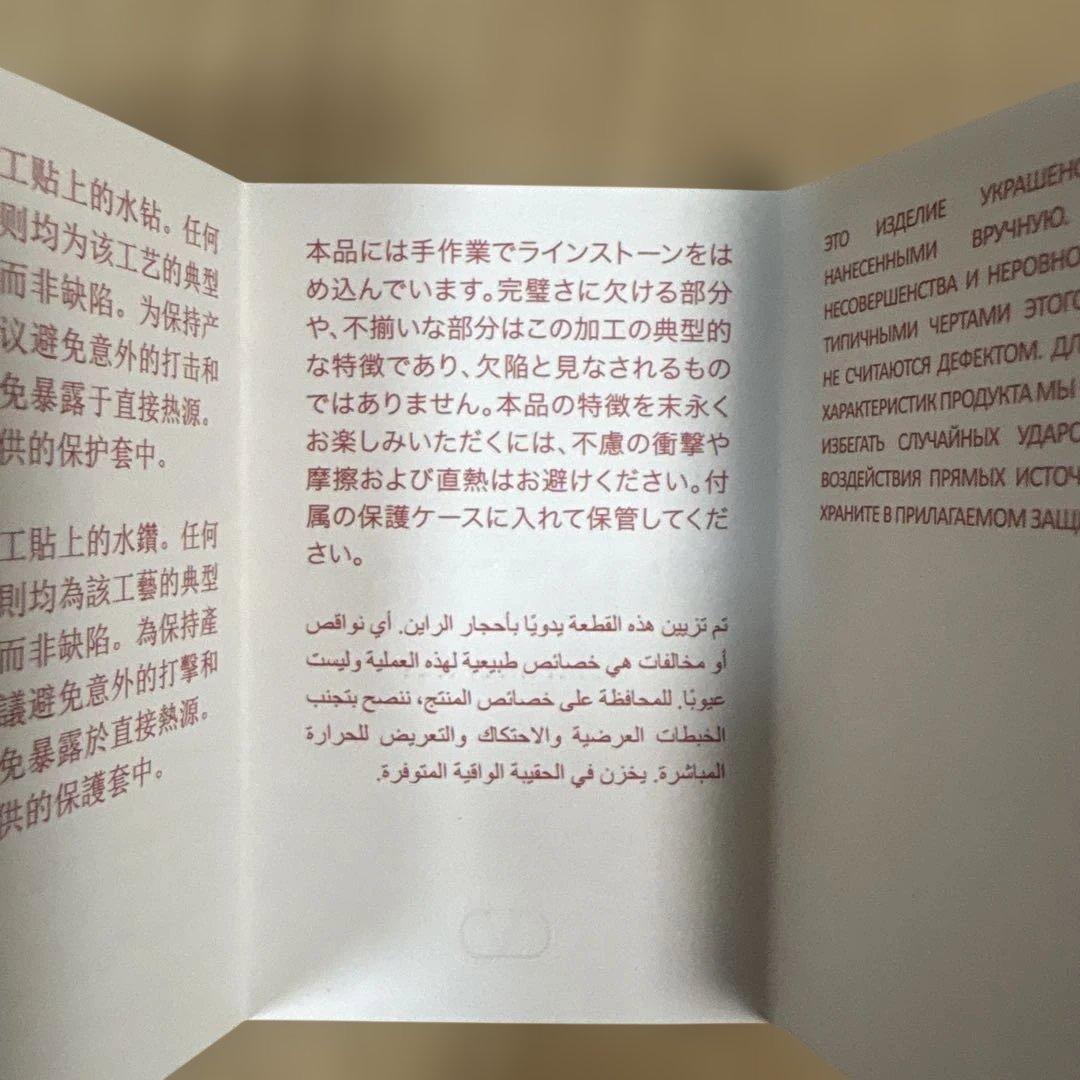 工贴上的水钻。任何
则均为该工艺的典型
而非缺陷。为保持产
议避免意外的打击和
免暴露于直接热源。
供的保护套中。
工貼上的水鑽。任何
則均為該工藝的典型
而非缺陷。為保持產
議避免意外的打擊和
免暴露於直接熱源。
供的保護套中。
本品には手作業でラインストーンをは
め込んでいます。完璧さに欠ける部分
や、不揃いな部分はこの加工の典型的
な特徴であり、欠陥と見なされるもの
ではありません。本品の特徴を末永く
お楽しみいただくには、不慮の衝撃や
摩擦および直熱はお避けください。付
属の保護ケースに入れて保管してくだ
さい。
تم تزيين هذه القطعة يدويًا بأحجار الراين. أي نواقص
أو مخالفات هي خصائص طبيعية لهذه العملية وليست
عيوبًا. للمحافظة على خصائص المنتج، ننصح بتجنب
الخبطات العرضية والاحتكاك والتعريض للحرارة
المباشرة. يخزن في الحقيبة الواقية المتوفرة.
ЭТО ИЗДЕЛИЕ УКРАШЕНО
НАНЕСЕННЫМИ ВРУЧНУЮ.
НЕСОВЕРШЕНСТВА И НЕРОВНО
ТИПИЧНЫМИ ЧЕРТАМИ ЭТОГО
НЕ СЧИТАЮТСЯ ДЕФЕКТОМ. ДЛ
ХАРАКТЕРИСТИК ПРОДУКТА МЫ
ИЗБЕГАТЬ СЛУЧАЙНЫХ УДАРО
ВОЗДЕЙСТВИЯ ПРЯМЫХ ИСТОЧ
ХРАНИТЕ В ПРИЛАГАЕМОМ ЗАЩИ